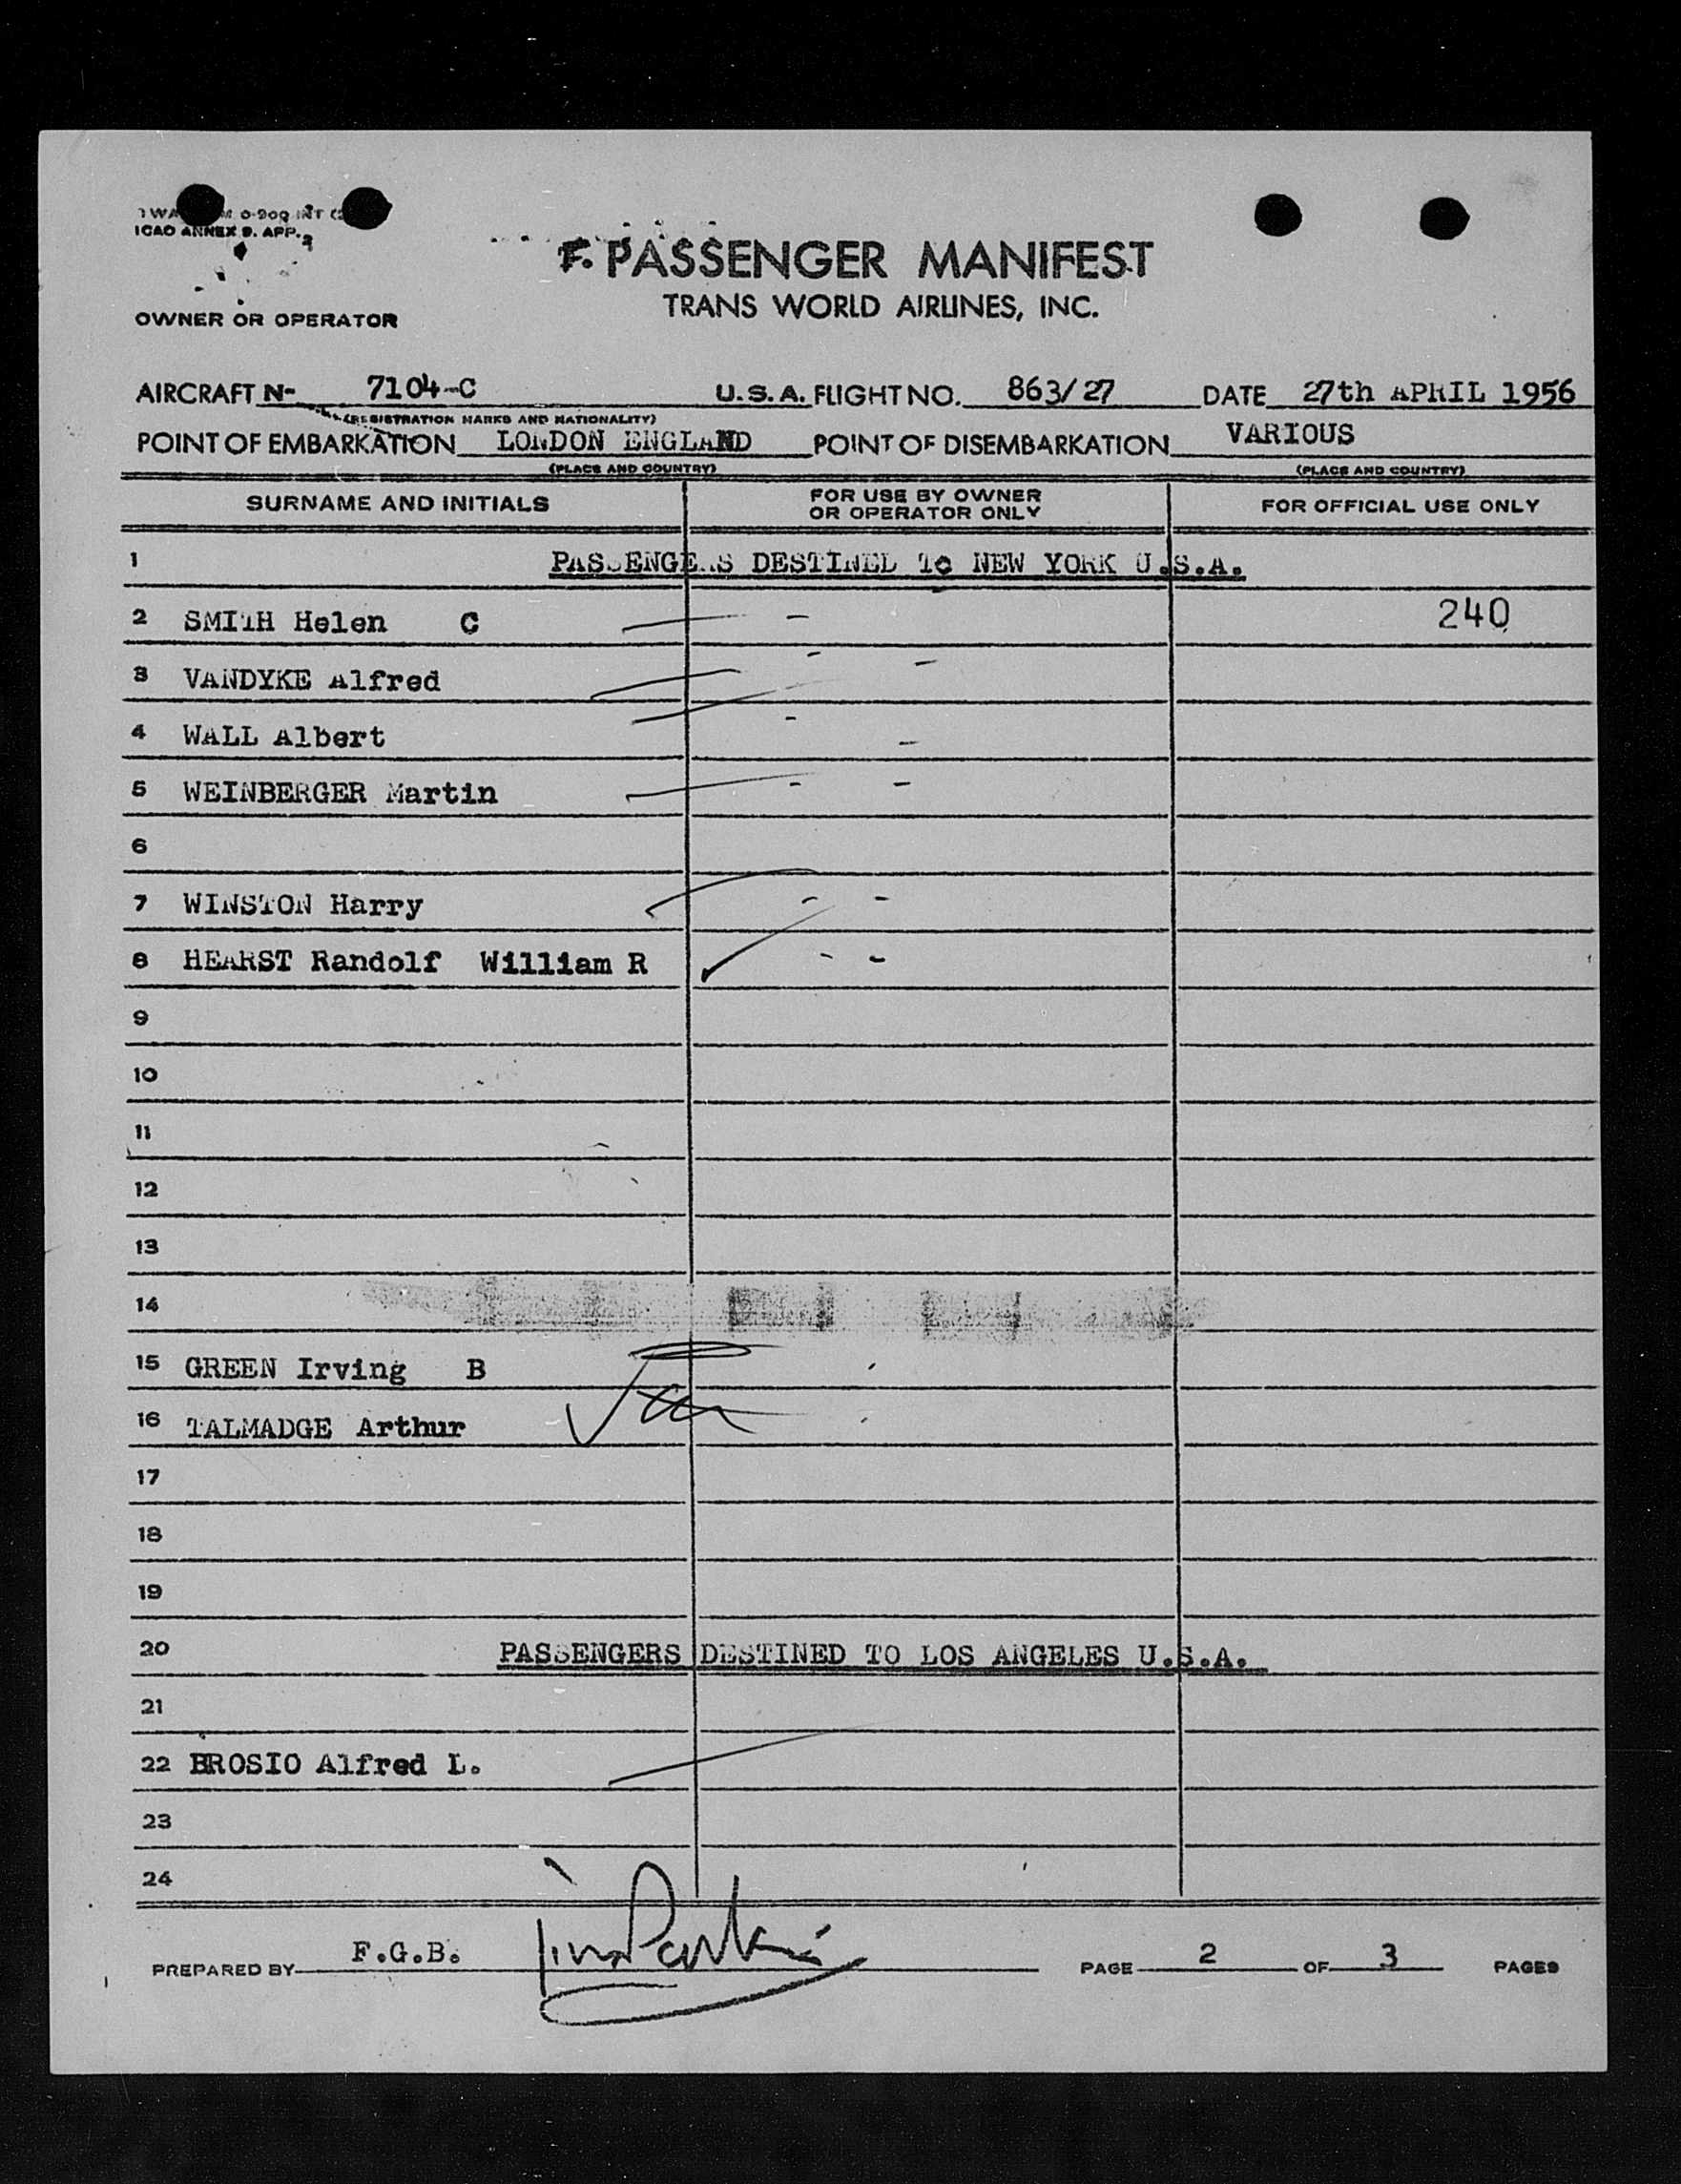 ICAO ANNEX 9. APP. 2
F. PASSENGER MANIFEST
TRANS WORLD AIRLINES, INC.
OWNER OR OPERATOR
AIRCRAFT N- 7104-C U.S.A. FLIGHT NO. 863/27 DATE 27th APRIL 1956
(REGISTRATION MARKS AND NATIONALITY)
POINT OF EMBARKATION LONDON ENGLAND POINT OF DISEMBARKATION VARIOUS
(PLACE AND COUNTRY) (PLACE AND COUNTRY)
SURNAME AND INITIALS FOR USE BY OWNER OR OPERATOR ONLY FOR OFFICIAL USE ONLY
1 PASSENGERS DESTINED TO NEW YORK U.S.A.
2 SMITH Helen C 240
3 VANDYKE Alfred
4 WALL Albert
5 WEINBERGER Martin
6
7 WINSTON Harry
8 HEARST Randolf William R
9
10
11
12
13
14
15 GREEN Irving B
16 TALMADGE Arthur
17
18
19
20 PASSENGERS DESTINED TO LOS ANGELES U.S.A.
21
22 BROSIO Alfred L.
23
24
PREPARED BY F.G.B. PAGE 2 OF 3 PAGES